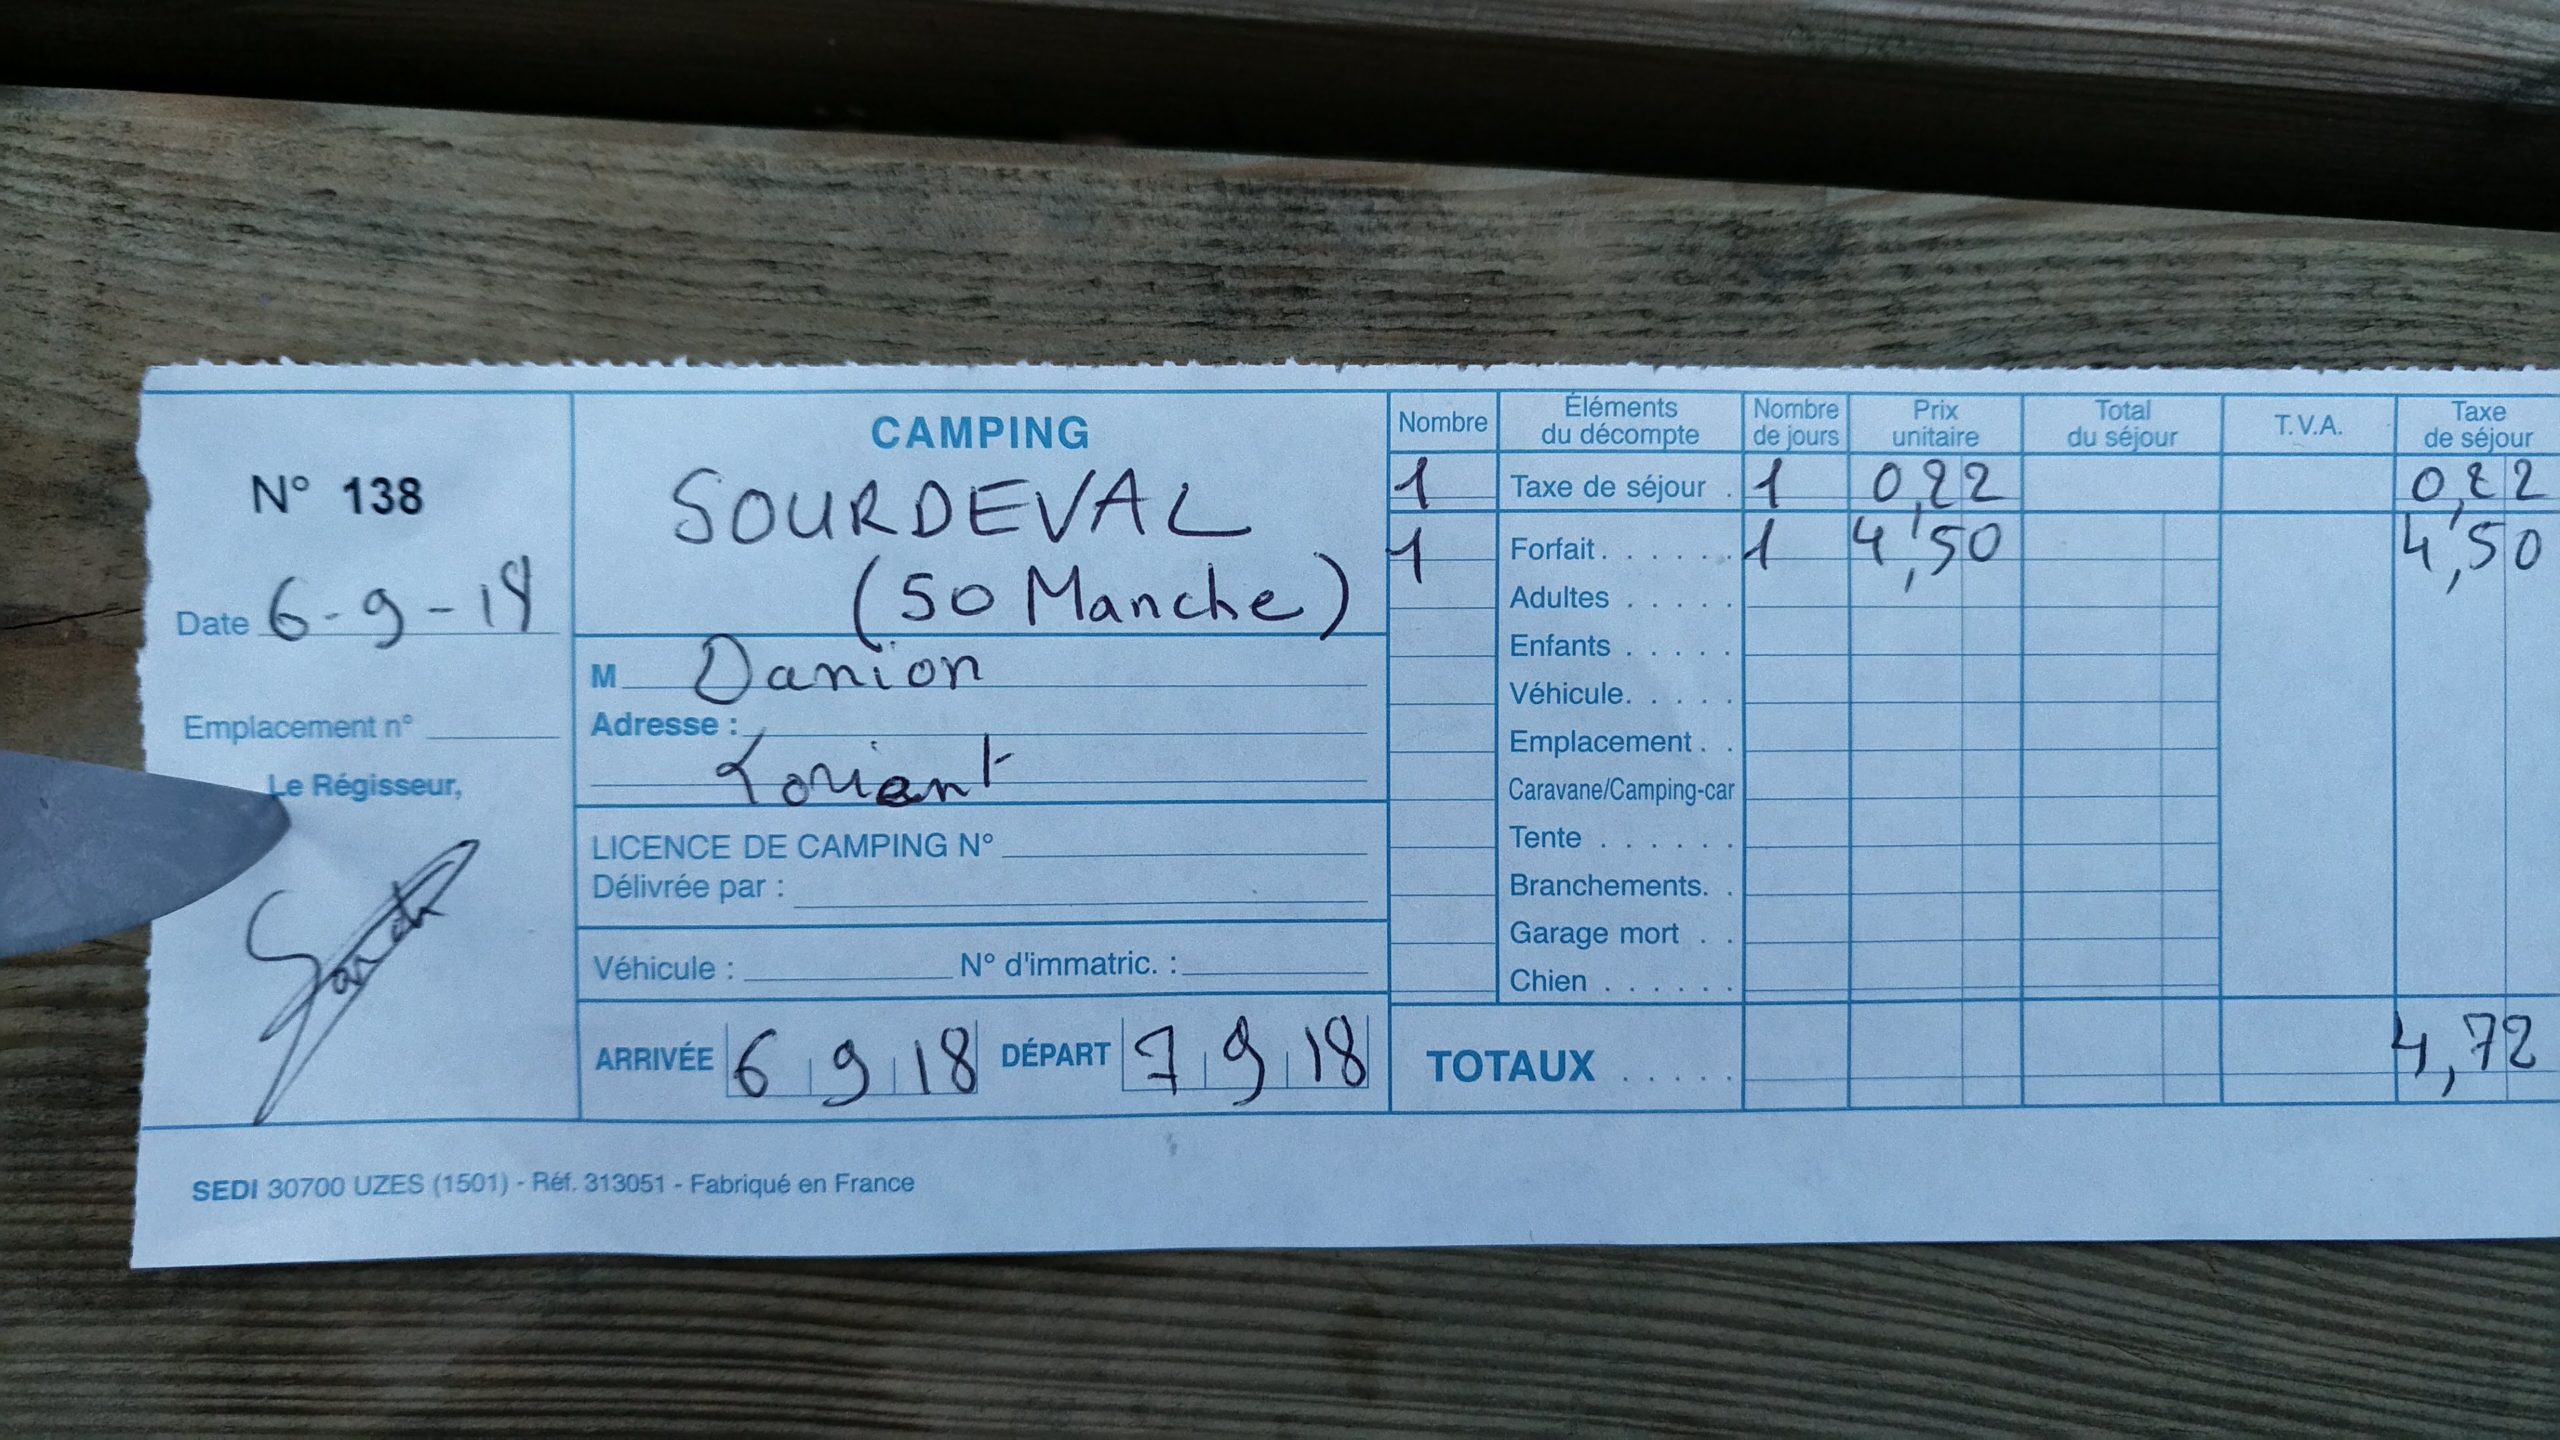 N° 138
Date 6-9-18
Emplacement n°
Le Régisseur,
CAMPING
SOURDEVAL
(50 Manche)
M Danion
Adresse :
Lorient
LICENCE DE CAMPING N°
Délivrée par :
Véhicule : N° d'immatric. :
ARRIVÉE 6 9 18 DÉPART 7 9 18
Nombre Éléments du décompte Nombre de jours Prix unitaire Total du séjour T.V.A. Taxe de séjour
1 Taxe de séjour . 1 0,22 0,22
1 Forfait. . . . . . 1 4,50 4,50
Adultes . . . . .
Enfants . . . . .
Véhicule. . . . .
Emplacement . .
Caravane/Camping-car
Tente . . . . . .
Branchements. .
Garage mort . .
Chien . . . . . .
TOTAUX . . . . . 4,72
SEDI 30700 UZES (1501) - Réf. 313051 - Fabriqué en France